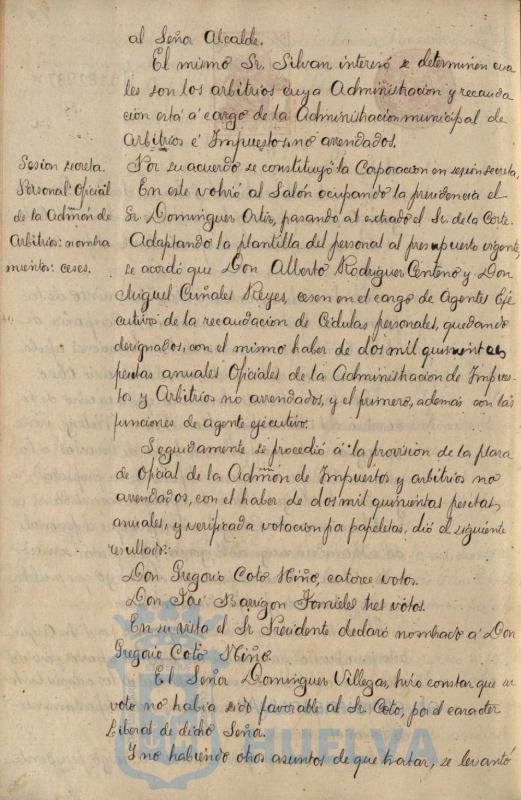 al Señor Alcalde.
El mismo Sr. Silvan interesó se determinen cua
les son los arbitrios cuya Administracion y recauda
cion está á cargo de la Administracion municipal de
Arbitrios é Impuestos no arrendados.
Sesion secreta.
Personal: Oficial
de la Admón de
Arbitrios: nombra
mientos: ceses.
Por su acuerdo se constituyó la Corporacion en sesion secreta.
En este volvió al Salón ocupando la presidencia el
Sr Dominguez Ortiz, pasando al estrado el Sr. de la Corte.
Adaptando la plantilla del personal al presupuerto vigente,
se acordó que Don Alberto Rodriguez Centeno y Don
Miguel Cuñales Reyes, cesen en el cargo de Agentes Eje
cutivos de la recaudacion de Cédulas personales, quedando
designados, con el mismo haber de dos mil quinientas
pesetas anuales Oficiales de la Administracion de Impues-
tos y Arbitrios no arrendados, y el primero, además con las
funciones de agente ejecutivo.
Seguidamente se procedió á la provision de la plaza
de Oficial de la Admón de Impuestos y arbitrios no
arrendados, con el haber de dos mil quinientas pesetas,
anuales, y verificada votacion por papeletas, dió el siguiente
resultado:
Don Gregorio Coto Niño, catorce votos.
Don José Barrigon tres votos.
En su vista el Sr Presidente declaró nombrado á Don
Gregorio Coto Niño.
El Señor Dominguez Villegas, hizo constar que su
voto no habia sido favorable al Sr Coto, por el caracter
liberal de dicho Señor.
Y no habiendo otros asuntos de que tratar, se levantó
HUELVA